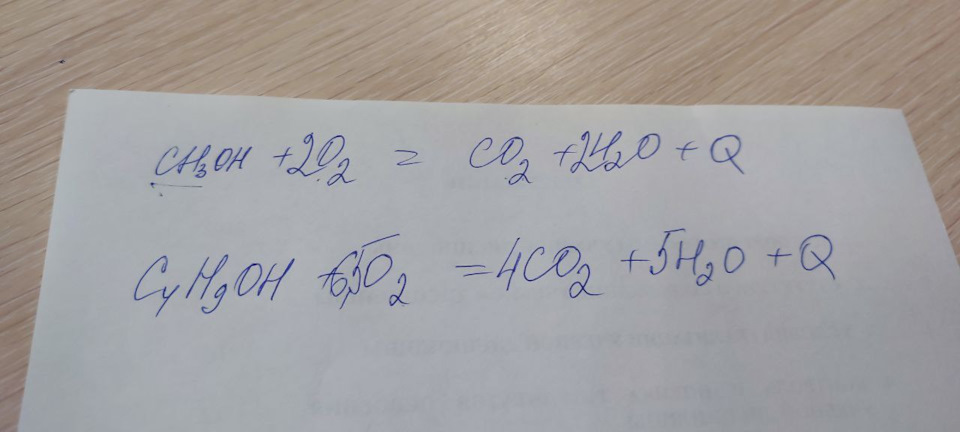 CH₃OH + 2O₂ = CO₂ + 2H₂O + Q
C₄H₉OH + 6,5O₂ = 4CO₂ + 5H₂O + Q